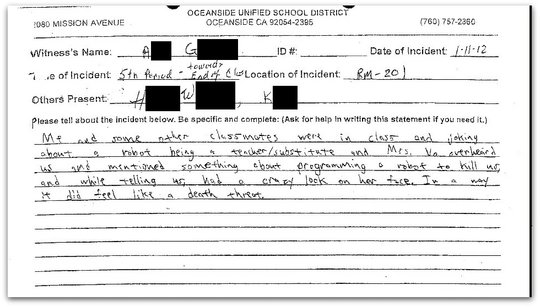 OCEANSIDE UNIFIED SCHOOL DISTRICT
2080 MISSION AVENUE OCEANSIDE CA 92054-2385 (760) 757-2360
Witness's Name: A G ID #: Date of Incident: 1-11-12
of Incident: 5th Period - towards End of Class Location of Incident: RM-201
Others Present: H W K
Please tell about the incident below. Be specific and complete: (Ask for help in writing this statement if you need it.)
Me and some other classmates were in class and joking
about a robot being a teacher/substitute and Mrs. Vo overheard
us and mentioned something about programming a robot to kill us,
and while telling us, had a crazy look on her face. In a way
it did feel like a death threat.